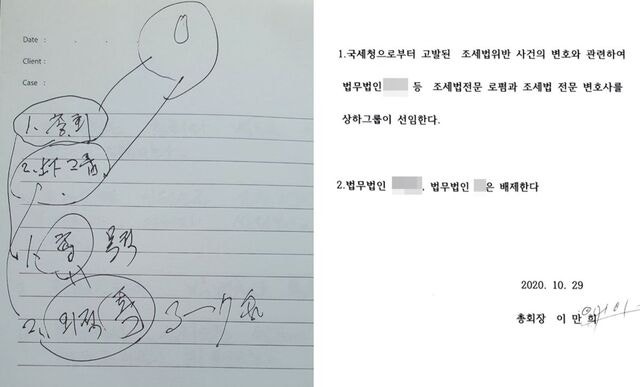 Date :
Client :
Case :
1. 총회
1.
2.
3-7
1.국세청으로부터 고발된 조세법위반 사건의 변호와 관련하여
법무법인 등 조세법전문 로펌과 조세법 전문 변호사를
상하그룹이 선임한다.
2.법무법인 , 법무법인 은 배제한다
2020. 10. 29
총회장 이 만 희